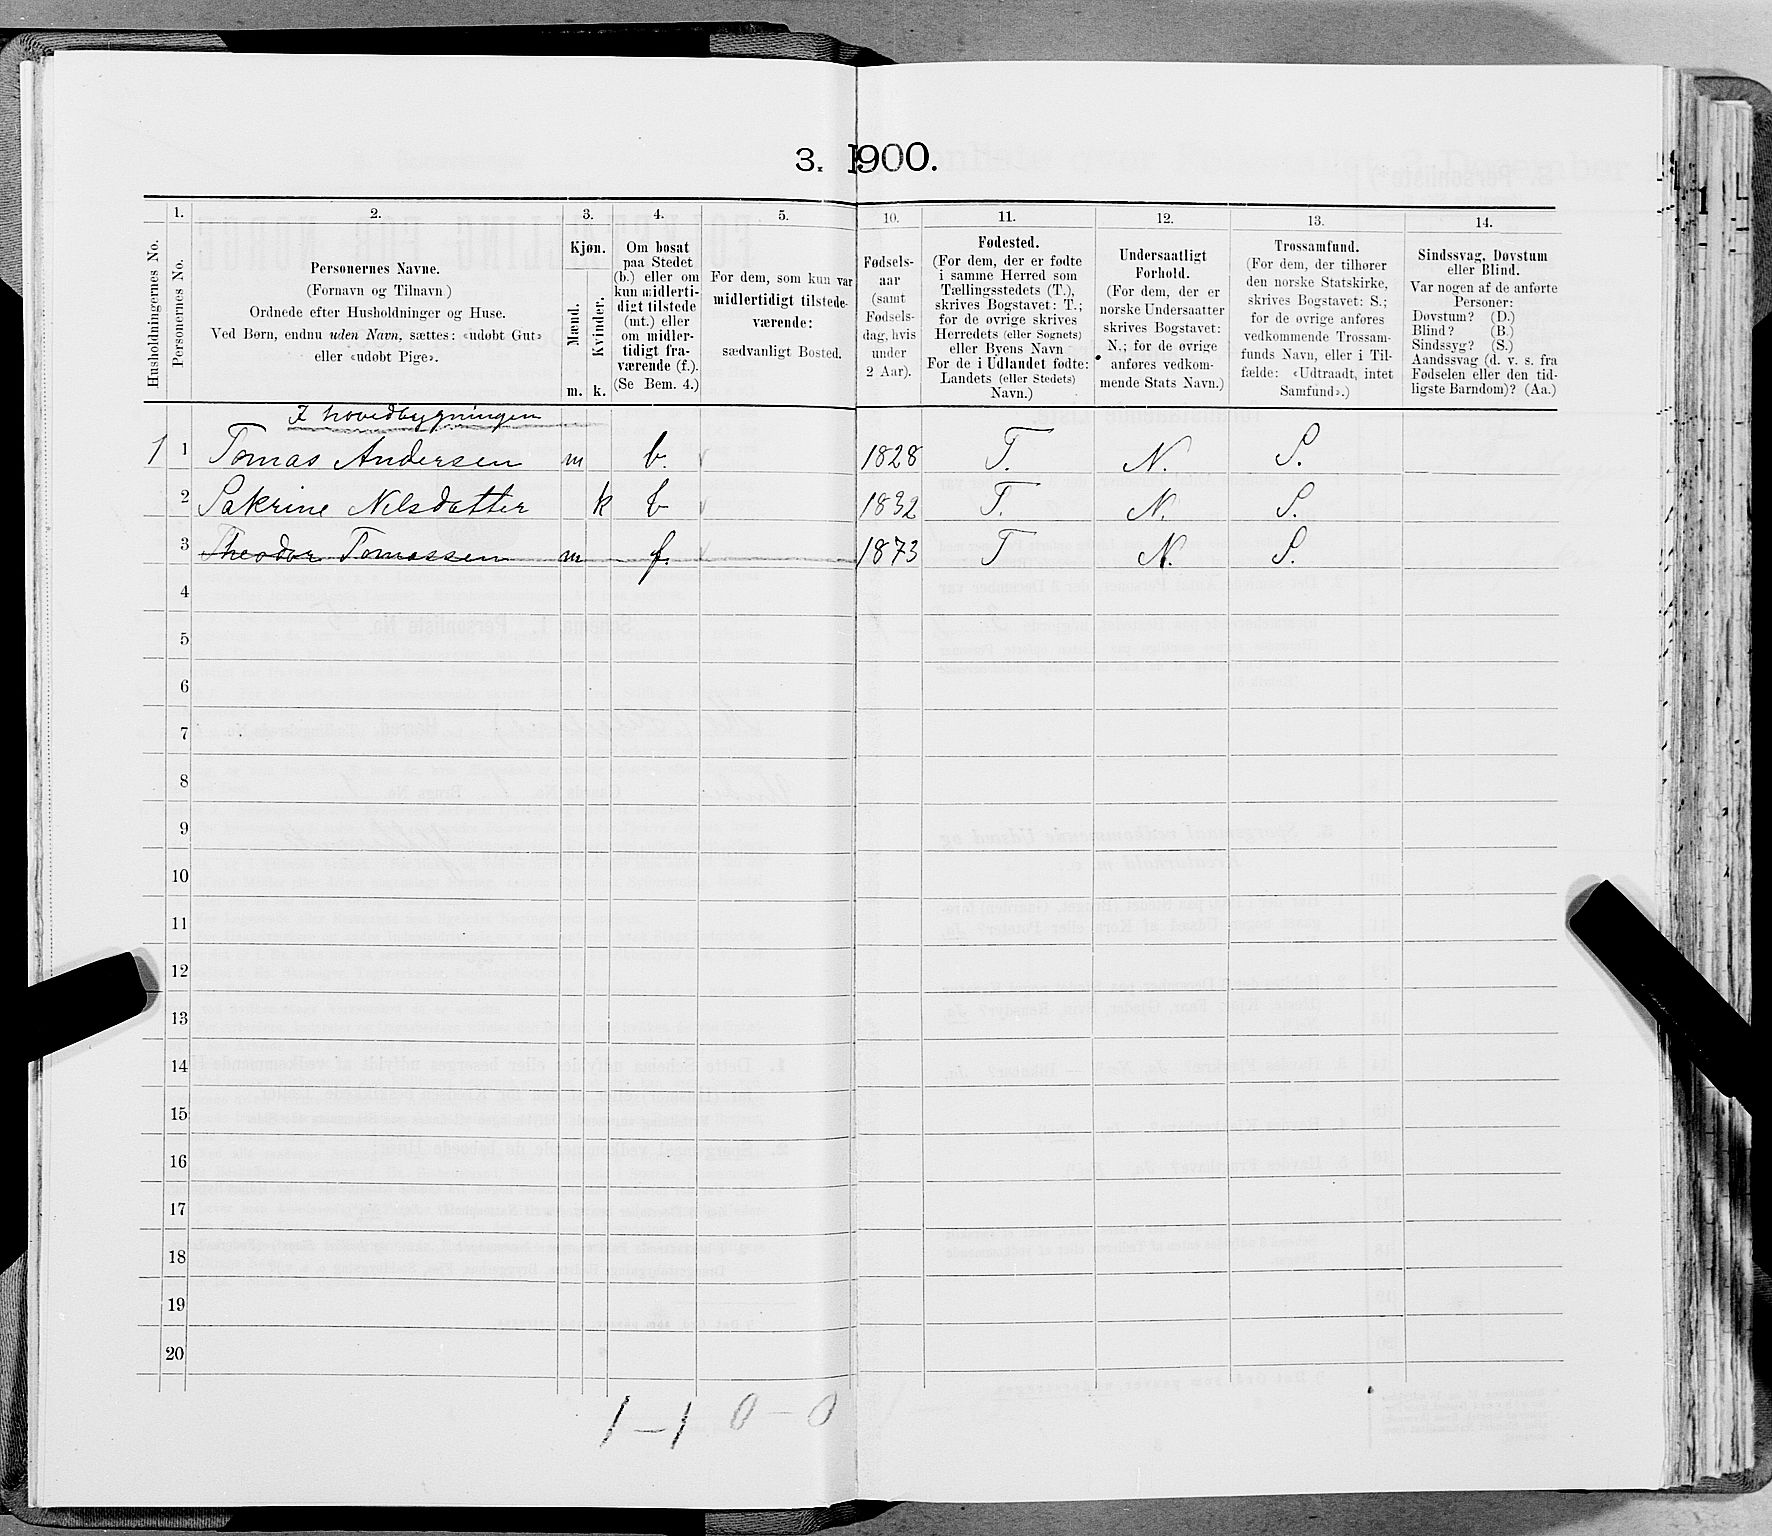 3. 1900.
1. 2. 3. 4. 5. 10. 11. 12. 13. 14.
Husholdningernes No.
Personernes No.
Personernes Navne.
(Fornavn og Tilnavn)
Ordnede efter Husholdninger og Huse.
Ved Børn, endnu uden Navn, sættes: «udøbt Gut»
eller «udøbt Pige».
Kjøn.
Mænd.
Kvinder.
m. k.
Om bosat
paa Stedet
(b.) eller om
kun midlerti-
digt tilstede
(mt.) eller
om midler-
tidigt fra-
værende (f.).
(Se Bem. 4.)
For dem, som kun var
midlertidigt tilstede-
værende:
sædvanligt Bosted.
Fødsels-
aar
(samt
Fødsels-
dag, hvis
under
2 Aar).
Fødested.
(For dem, der er fødte
i samme Herred som
Tællingsstedets (T.),
skrives Bogstavet: T.;
for de øvrige skrives
Herredets (eller Sognets)
eller Byens Navn
For de i Udlandet fødte:
Landets (eller Stedets)
Navn.)
Undersaatligt
Forhold.
(For dem, der er
norske Undersaatter
skrives Bogstavet:
N.; for de øvrige
anføres vedkom-
mende Stats Navn.)
Trossamfund.
(For dem, der tilhører
den norske Statskirke,
skrives Bogstavet: S.;
for de øvrige anføres
vedkommende Trossam-
funds Navn, eller i Til-
fælde: «Udtraadt, intet
Samfund».)
Sindssvag, Døvstum
eller Blind.
Var nogen af de anførte
Personer:
Døvstum? (D.)
Blind? (B.)
Sindssyg? (S.)
Aandssvag (d. v. s. fra
Fødselen eller den tid-
ligste Barndom)? (Aa.)
I hovedbygningen
1 1 Tomas Andersen m b. 1828 T. N. S.
2 Sakrine Nilsdatter k b 1832 T. N. S.
3 Theodor Tomassen m f. 1873 T N. S.
4
5
6
7
8
9
10
11
12
13
14
15
16
17
18
19
20
1 – 1 0 – 0